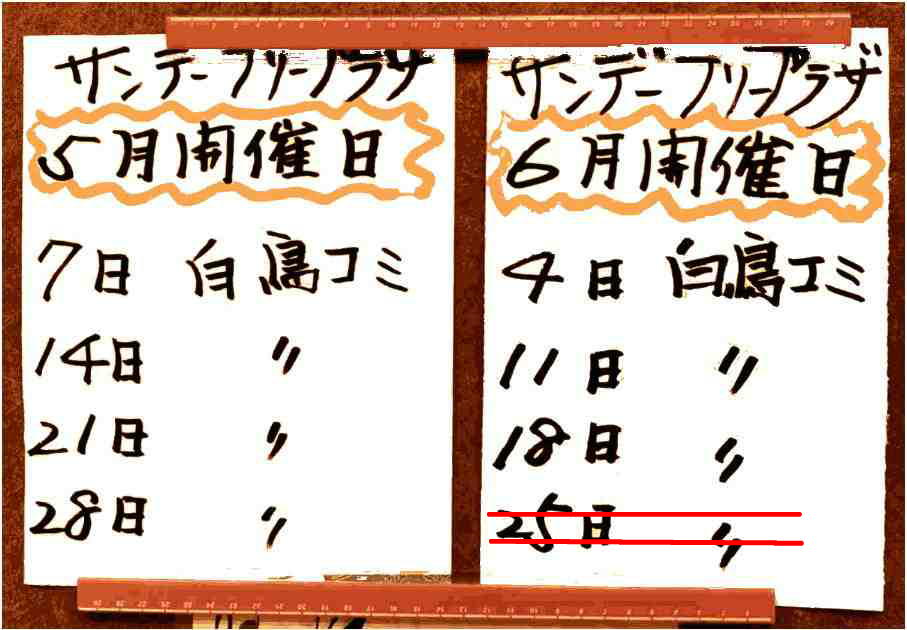 サンデーフリープラザ
5月開催日
7日 白鳥コミ
14日 〃
21日 〃
28日 〃
サンデーフリープラザ
6月開催日
4日 白鳥コミ
11日 〃
18日 〃
25日 〃